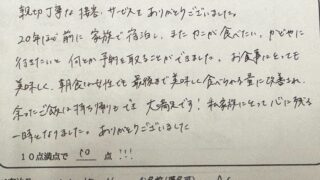 親切丁寧な接客、サービスをありがとうございました。
20年ほど前に家族で宿泊し、またカニが食べたい、かどやに
行きたいと何とか予約を取ることができました。お食事はとっても
美味しく、朝食は女性でも最後まで美味しく食べられる量に改善され、
余ったご飯は持ち帰りもでき大満足です！私家族にとって心に残る
一時となりました。ありがとうございました
10点満点で 10 点!!!